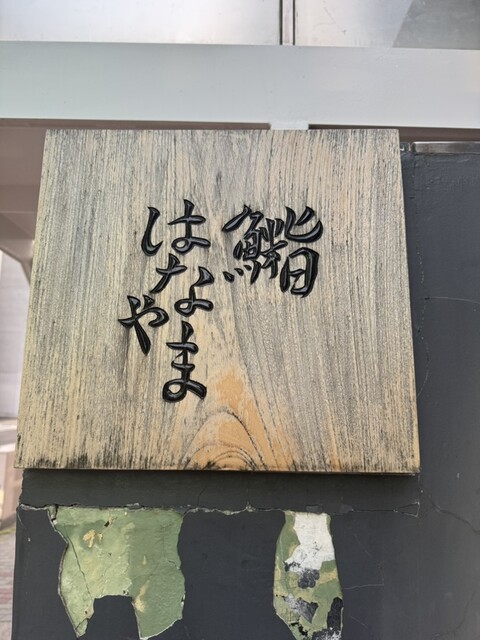 鮨
はなやま